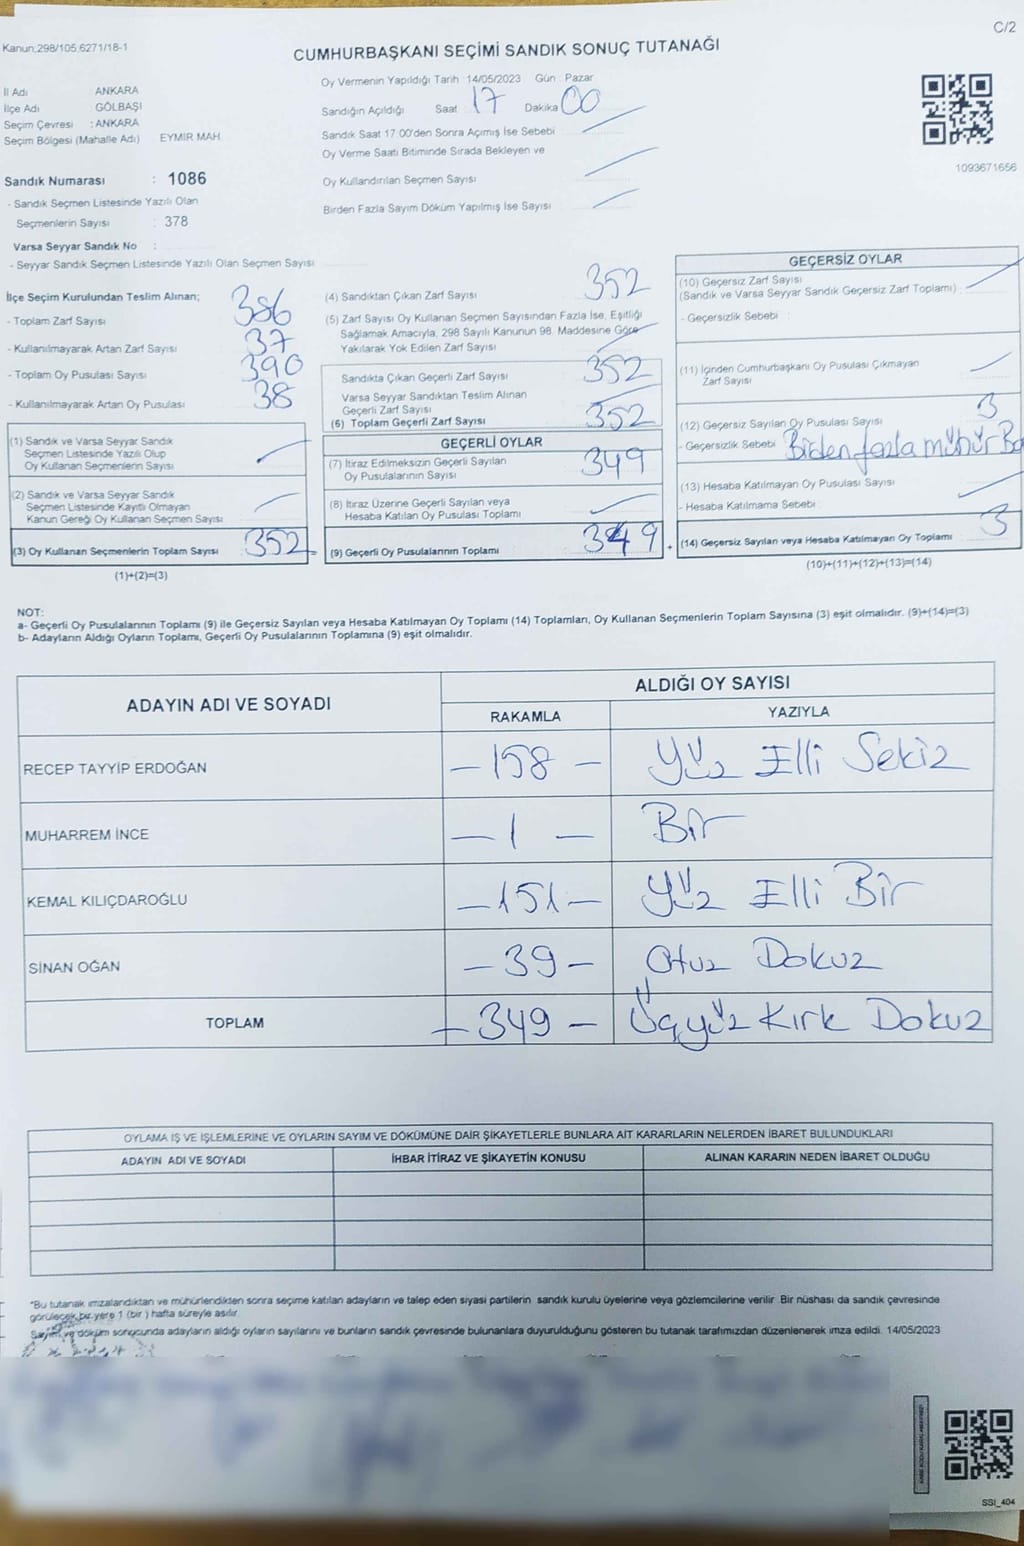 C/2
Kanun;298/105,6271/18-1
CUMHURBAŞKANI SEÇİMİ SANDIK SONUÇ TUTANAĞI
İl Adı ANKARA
İlçe Adı GÖLBAŞI
Seçim Çevresi : ANKARA
Seçim Bölgesi (Mahalle Adı) EYMİR MAH.
Sandık Numarası : 1086
- Sandık Seçmen Listesinde Yazılı Olan
Seçmenlerin Sayısı : 378
Varsa Seyyar Sandık No :
- Seyyar Sandık Seçmen Listesinde Yazılı Olan Seçmen Sayısı
Oy Vermenin Yapıldığı Tarih :14/05/2023 Gün : Pazar
Sandığın Açıldığı Saat 17 Dakika 00
Sandık Saat 17.00'den Sonra Açımış İse Sebebi
Oy Verme Saati Bitiminde Sırada Bekleyen ve
Oy Kullandırılan Seçmen Sayısı
Birden Fazla Sayım Döküm Yapılmış İse Sayısı
1093671656
İlçe Seçim Kurulundan Teslim Alınan;
- Toplam Zarf Sayısı 386
- Kullanılmayarak Artan Zarf Sayısı 37
- Toplam Oy Pusulası Sayısı 390
- Kullanılmayarak Artan Oy Pusulası 38
(1) Sandık ve Varsa Seyyar Sandık
Seçmen Listesinde Yazılı Olup
Oy Kullanan Seçmenlerin Sayısı
(2) Sandık ve Varsa Seyyar Sandık
Seçmen Listesinde Kayıtlı Olmayan
Kanun Gereği Oy Kullanan Seçmen Sayısı
(3) Oy Kullanan Seçmenlerin Toplam Sayısı 352
(1)+(2)=(3)
(4) Sandıktan Çıkan Zarf Sayısı 352
(5) Zarf Sayısı Oy Kullanan Seçmen Sayısından Fazla İse, Eşitliği
Sağlamak Amacıyla, 298 Sayılı Kanunun 98. Maddesine Göre
Yakılarak Yok Edilen Zarf Sayısı
Sandıkta Çıkan Geçerli Zarf Sayısı 352
Varsa Seyyar Sandıktan Teslim Alınan
Geçerli Zarf Sayısı
(6) Toplam Geçerli Zarf Sayısı 352
GEÇERLİ OYLAR
(7) İtiraz Edilmeksizin Geçerli Sayılan
Oy Pusulalarının Sayısı 349
(8) İtiraz Üzerine Geçerli Sayılan veya
Hesaba Katılan Oy Pusulası Toplamı
(9) Geçerli Oy Pusulalarının Toplamı 349
GEÇERSİZ OYLAR
(10) Geçersiz Zarf Sayısı
(Sandık ve Varsa Seyyar Sandık Geçersiz Zarf Toplamı) :
- Geçersizlik Sebebi :
(11) İçinden Cumhurbaşkanı Oy Pusulası Çıkmayan
Zarf Sayısı
(12) Geçersiz Sayılan Oy Pusulası Sayısı 3
- Geçersizlik Sebebi Birden fazla mühür
(13) Hesaba Katılmayan Oy Pusulası Sayısı
- Hesaba Katılmama Sebebi
(14) Geçersiz Sayılan veya Hesaba Katılmayan Oy Toplamı 3
(10)+(11)+(12)+(13)=(14)
NOT:
a- Geçerli Oy Pusulalarının Toplamı (9) ile Geçersiz Sayılan veya Hesaba Katılmayan Oy Toplamı (14) Toplamları, Oy Kullanan Seçmenlerin Toplam Sayısına (3) eşit olmalıdır. (9)+(14)=(3)
b- Adayların Aldığı Oyların Toplamı, Geçerli Oy Pusulalarının Toplamına (9) eşit olmalıdır.
ADAYIN ADI VE SOYADI ALDIĞI OY SAYISI
RAKAMLA YAZIYLA
RECEP TAYYİP ERDOĞAN -158- Yüz Elli Sekiz
MUHARREM İNCE -1- Bir
KEMAL KILIÇDAROĞLU -151- Yüz Elli Bir
SİNAN OĞAN -39- Otuz Dokuz
TOPLAM -349- Üçyüz Kırk Dokuz
OYLAMA İŞ VE İŞLEMLERİNE VE OYLARIN SAYIM VE DÖKÜMÜNE DAİR ŞİKAYETLERLE BUNLARA AİT KARARLARIN NELERDEN İBARET BULUNDUKLARI
ADAYIN ADI VE SOYADI İHBAR İTİRAZ VE ŞİKAYETİN KONUSU ALINAN KARARIN NEDEN İBARET OLDUĞU
*Bu tutanak imzalandıktan ve mühürlendikten sonra seçime katılan adayların ve talep eden siyasi partilerin sandık kurulu üyelerine veya gözlemcilerine verilir. Bir nüshası da sandık çevresinde
görülecek bir yere 1 (bir ) hafta süreyle asılır.
Sayım ve döküm sonucunda adayların aldığı oyların sayılarını ve bunların sandık çevresinde bulunanlara duyurulduğunu gösteren bu tutanak tarafımızdan düzenlenerek imza edildi. 14/05/2023
SSI_404